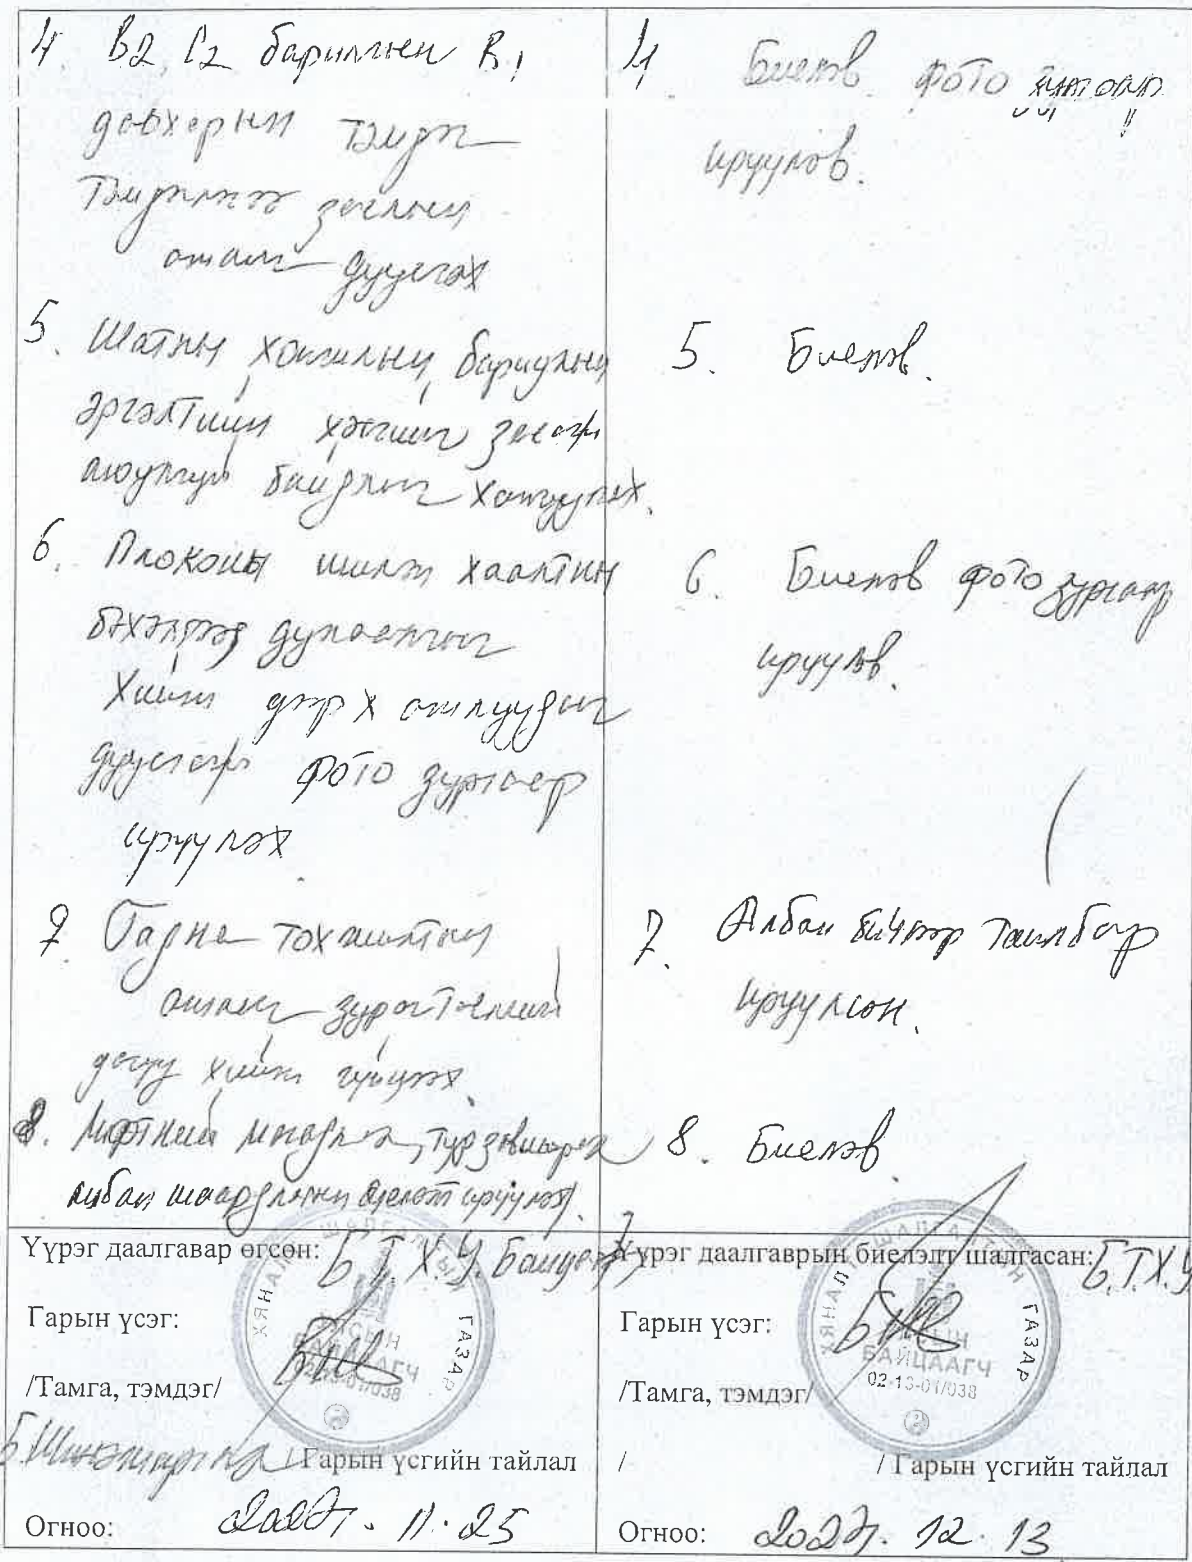 4. В2, С2 барилгын В1
давхарын тэмдэг
тэмдэглэгээ заалны
ажлыг дуусгах
5. Шатны хашлаганы, бариулын
эргэлтийн хэсгийг засаж
аюулгүй байдлыг хангуулах.
6. Плоконы шилэн хаалтын
бэхэлгээ дулаалгыг
хийж дээрх ажлуудыг
дуусгаж фото зургаар
ирүүлэх
7. Гадна тохижилтын
ажлыг зураг төслийн
дагуу хийж гүйцээх.
8. Лифтний
албан шаардлагын биелэлт ирүүлэх.
4. Биелэв. фото зургаар
ирүүлэв.
5. Биелэв.
6. Биелэв фото зургаар
ирүүлэв.
7. Албан бичгээр тайлбар
ирүүлсэн.
8. Биелэв
Үүрэг даалгавар өгсөн: Б.Т.Х.У.
Гарын үсэг:
/Тамга, тэмдэг/
/ Гарын үсгийн тайлал
Огноо: 11.25
Үүрэг даалгаврын биелэлт шалгасан: Б.Т.Х.У
Гарын үсэг:
/Тамга, тэмдэг/
/ / Гарын үсгийн тайлал
Огноо: 12.13
ХЯНАЛТ ШАЛГАЛТЫН ГАЗАР
БАЙЦААГЧ
02-13-01/038